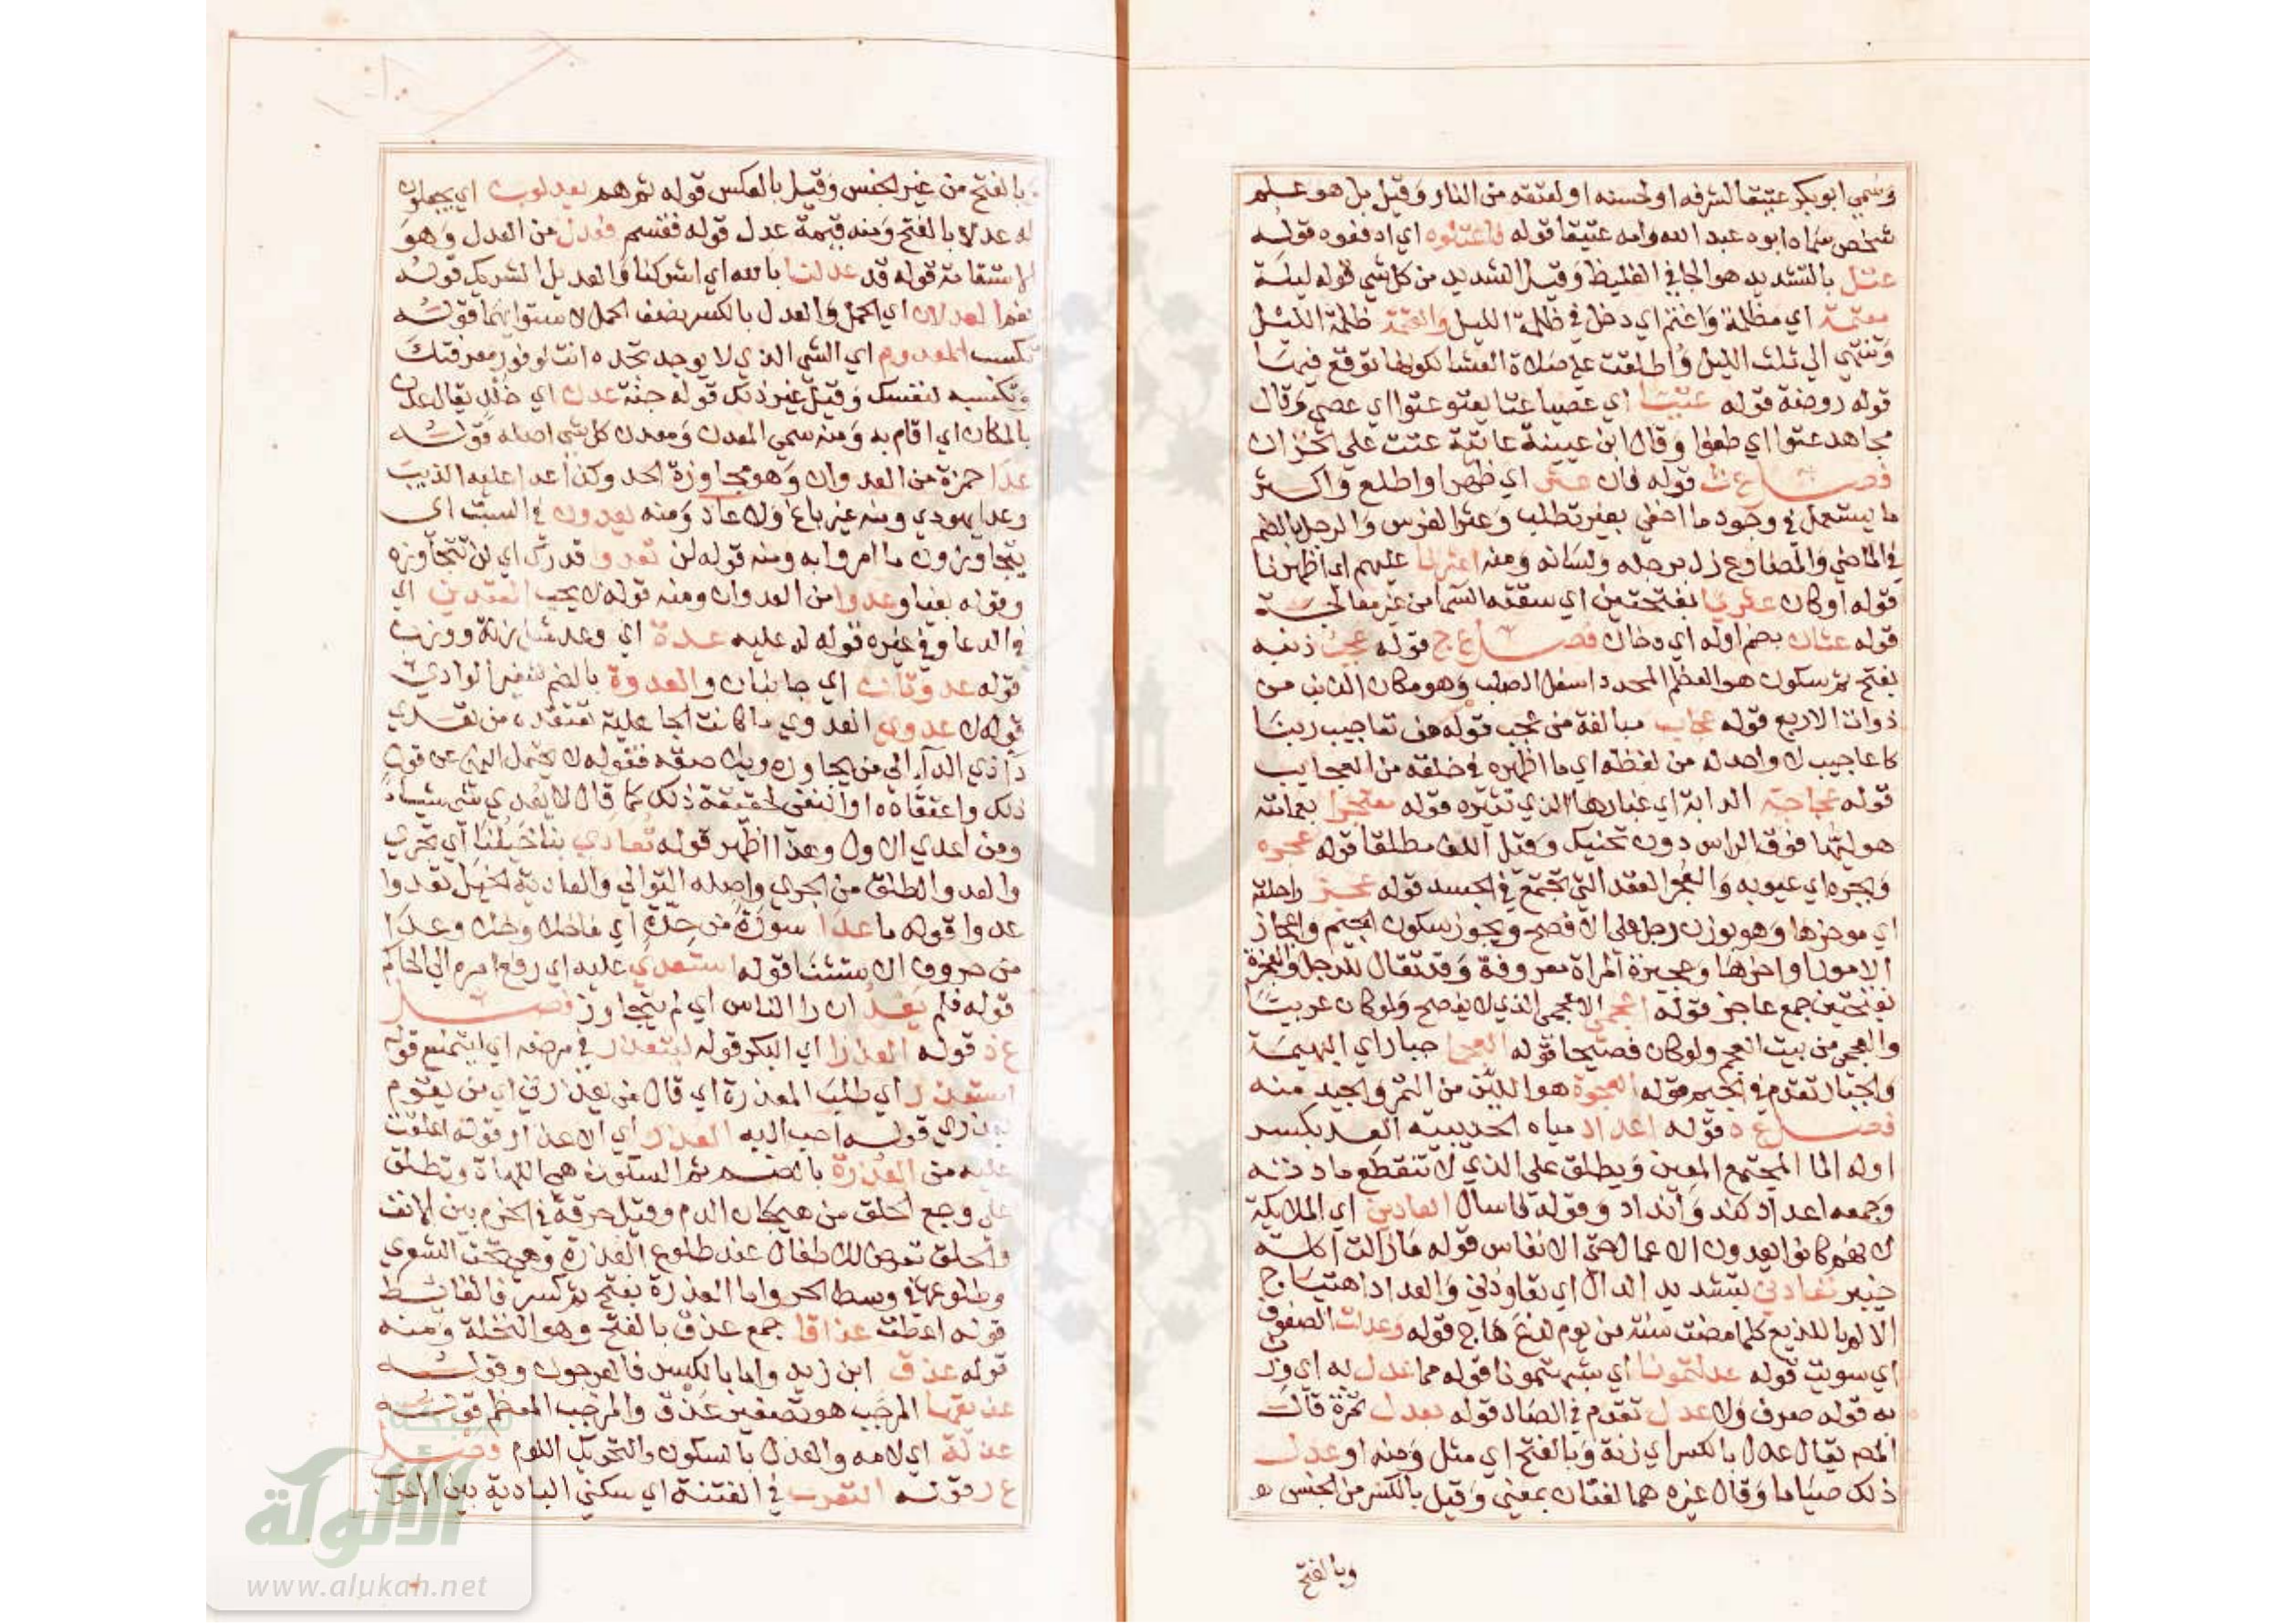 وسمي ابو بكر عتيقا لشرفه او لحسنه او لعتقه من النار وقيل بل هو علم
شخص سماه ابوه عبد الله وامه عتيقا قوله فاعتلوه اي ادفعوه قوله
عتل بالتشديد هو الجافي الغليظ وقيل الشديد من كل شي قوله ليلة
معتمة اي مظلمة واعتم اي دخل في ظلمة الليل والعتمة ظلمة الليل
وتنتهي الي ثلث الليل واطلقت على صلاة العشا لكونها توقع فيها
قوله روضة قوله عتيا اي عصيا عتا يعتو عتوا اي عصى وقال
مجاهد عتوا اي طغوا وقال ابن عيينة عاتية عتت علي الخزان
فصل ع ث قوله فان عثر اي ظهر او اطلع واكثر
ما يستعمل في وجود ما اخفي بغير تطلب وعثر الفرس والرجل بالضم
في الماضي والمضارع زل برجله ولسانه ومنه اعثرنا عليهم اي اظهرنا
قوله او كان عثريا بفتحتين اي سقته السما من غير معالجة
قوله عثان بضم اوله اي دخان فصل ع ج قوله عجب ذنبه
بفتح ثم سكون هو العظم المحدد اسفل الصلب وهو مكان الذنب من
ذوات الاربع قوله عجاب مبالغة من عجب قوله من تعاجيب ربنا
كاعاجيب لا واحد له من لفظه اي ما اظهره في خلقه من العجايب
قوله عجاجة الدابة اي غبارها الذي تثيره قوله معتجرا بعمامته
هو ليها فوق الراس دون تحنيك وقيل اللف مطلقا قوله عجره
وبجره اي عيوبه والعجر العقد التي تجتمع في الجسد قوله عجز راحلته
اي موخرها وهو بوزن رجل على الافصح ويجوز سكون الجيم واعجاز
الامور اواخرها وعجيزة المراة معروفة وقد تقال للرجل والعجزة
بفتحتين جمع عاجز قوله اعجمي الاعجمي الذي لا يفصح ولو كان عربيا
والعجمي من بيت العجم ولو كان فصيحا قوله العجما جبار اي البهيمة
والجبار تقدم في الجيم قوله العجوة هو اللين من التمر والجيد منه
فصل ع د قوله اعداد مياه الحديبية العد بكسر
اوله الما المجتمع المعين ويطلق على الذي لا تنقطع مادته
وجمعه اعداد كند وانداد وقوله فاسال العادين اي الملايكة
لانهم كانوا يعدون الاعمال حتى الانفاس قوله ما زالت اكلة
خيبر تعادني بتشديد الدال اي تعاودني والعداد اهتياج
الالم باللديغ كلما مضت سنة من يوم لدغ هاج قوله وعدلت الصفوف
اي سويت قوله عدلتمونا اي شبهتمونا قوله مما عدل به اي وزن
به قوله صرف ولا عدل تقدم في الصاد قوله بعدل تمرة قال
المص يقال عدل بالكسر اي زنة وبالفتح اي مثل ومنه او عدل
ذلك صياما وقال غيره هما لغتان بمعنى وقيل بالكسر من الجنس
وبالفتح
وبالفتح من غير الجنس وقيل بالعكس قوله ثم هم يعدلون اي يجعلون
له عدلا بالفتح ومنه قيمة عدل قوله فقسم فعدل من العدل وهو
الاستقامة قوله قد عدلنا بالله اي اشركنا والعديل الشريك قوله
نعم العدلان اي الحمل والعدل بالكسر نصف الحمل لاستوايهما قوله
تكسب المعدوم اي الشي الذي لا يوجد تجده انت لوفور معرفتك
وتكسبه لنفسك وقيل غير ذلك قوله جنة عدن اي خلد يقال عدن
بالمكان اي اقام به ومنه سمي المعدن ومعدن كل شي اصله قوله
عدا حمزة من العدوان وهو مجاوزة الحد وكذا عدا عليه الذيب
وعدا يهودي ومنه غير باغ ولا عاد ومنه يعدون في السبت اي
يتجاوزون ما امروا به ومنه قوله لن تعدوا قدرك اي لن تتجاوزه
وقوله بغيا وعدوا من العدوان ومنه قوله لا يحب المعتدين اي
في الدعا وفي غيره قوله له عليه عدة اي وعد مثل زنة ووزن
قوله عدوتان اي جانبان والعدوة بالضم شفير الوادي
قوله لا عدوى العدوي ما كانت الجاهلية تعتقده من تعدي
دا ذي الدا الي من يجاوره ويلاصقه فقوله لا يحتمل النهي عن قول
ذلك واعتقاده او النفي لحقيقة ذلك كما قال لا يعدي شي شيا
ومن اعدي الاول وهذا اظهر قوله تعادي بنا خيلنا اي تجري
والعدو الطلق من الجري واصله التوالي والعادية الخيل تعدوا
عدوا قوله ما عدا سورة من حدة اي ما خلا وخلا وعدا
من حروف الاستثنا قوله استعدي عليه اي رفع امره الي الحاكم
قوله فلم يعد ان را الناس اي لم يتجاوز فصل
ع ذ قوله العذرا اي البكر قوله ليتعذر في مرضه اي ليتمنع قوله
استعذر اي طلب المعذرة اي قال من يعذرني اي من يقوم
بعذري قوله احب اليه العذر اي الاعذار قوله اعلقت
عليه من العذرة بالضم ثم السكون هي اللهاة وتطلق
على وجع الحلق من هيجان الدم وقيل حرقة في الخرم بين الانف
والحلق تعرض للاطفال عند طلوع العذرة وهي تحت الشعري
وطلوعها في وسط الحر واما العذرة بفتح ثم كسر فالغايط
قوله اعطت عذاقا جمع عذق بالفتح وهو النخلة ومنه
قوله عذق ابن زيد واما بالكسر فالعرجون وقوله
عذيقها المرجب هو تصغير عذق والمرجب المعظم قوله
عذله اي لامه والعذل بالسكون والتحريك اللوم فصل
ع ر قوله التعرب في الفتنة اي سكني البادية بين الاعراب
شبكة
الألوكة
www.alukah.net